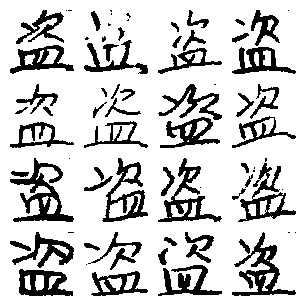 盗盗盗盗
盗盗盗盗
盗盗盗盗
盗盗盗盗